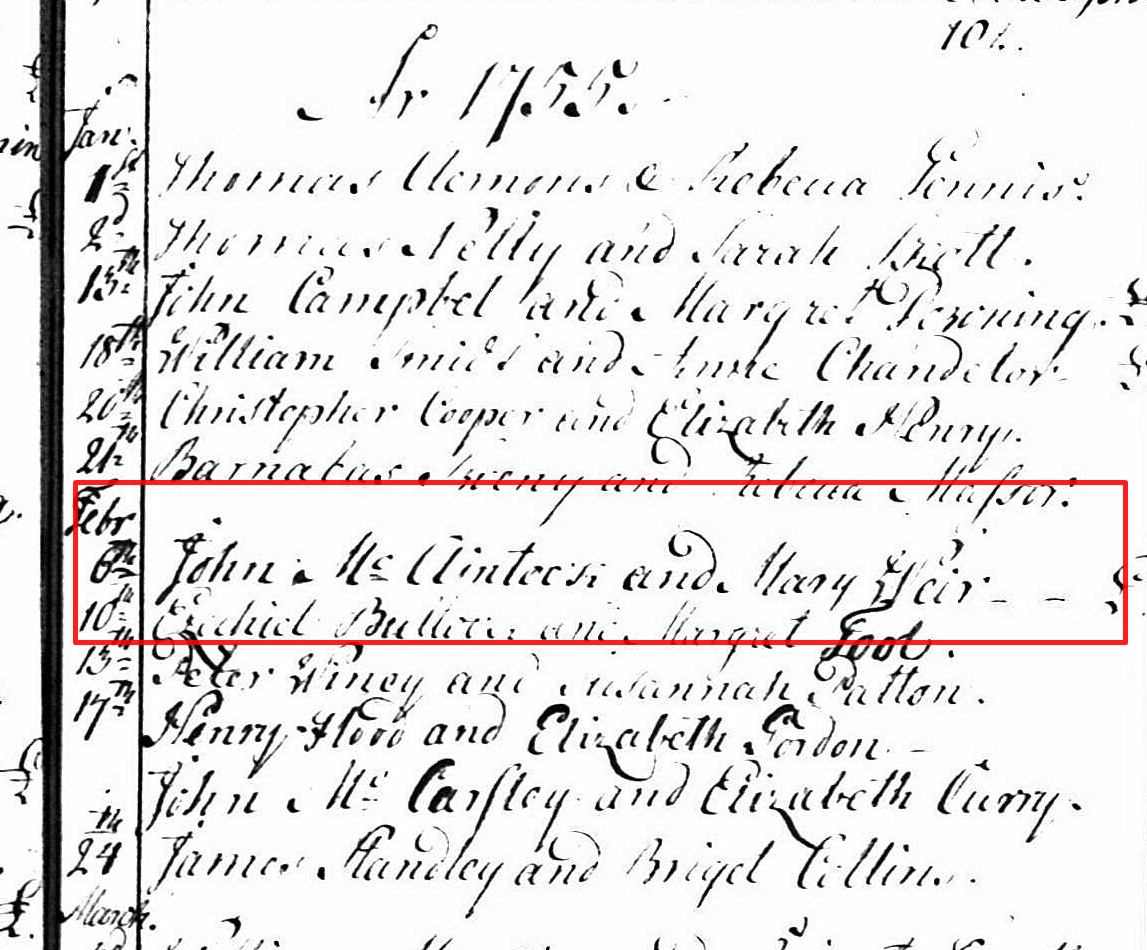 104.
Ar 1755.
Jan:
1st Thomas Clemons & Rebecca Tennis.
2d Thomas Nelly and Sarah Scott.
13th John Campbel and Margret Downing.
18th William and Anne Chandelor
20th Christopher Cooper and Elizabeth Henry.
21th Barnabas and Rebecca
Febr
6th John Mc Clintock and Mary Weir - -
10th Ezechiel and Margret Tool.
13th Peter Winey and Susannah Patton.
17th Henry Flood and Elizabeth Gordon -
John Mc Carsley and Elizabeth Curry.
24th James Standley and Briget Collins.
March.